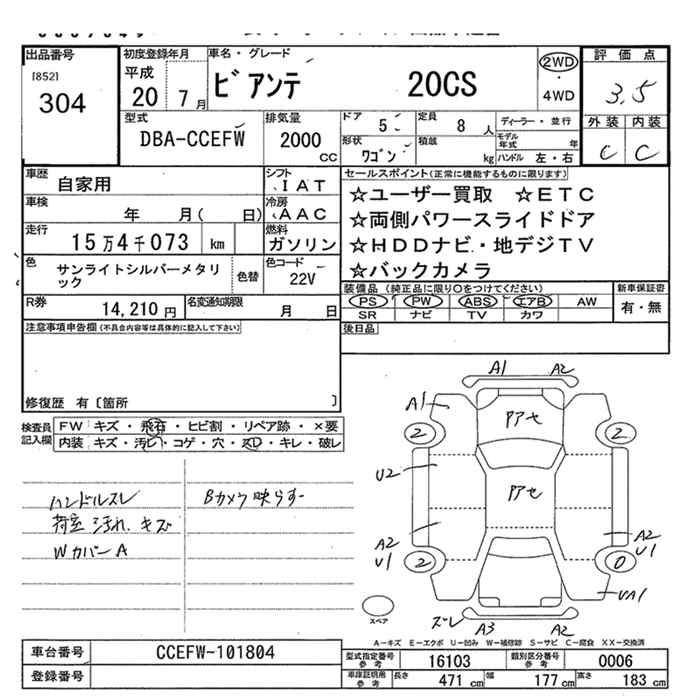 出品番号
[852]
304
初度登録年月
平成
20 7月
車名・グレード
ビアンテ 20CS
2WD
・
4WD
評価点
3.5
外装 内装
C C
型式
DBA-CCEFW
排気量
2000
cc
ドア
5
定員
8人
ディーラー・並行
形状
ワゴン
積載
kg
モデル年式 年
ハンドル 左・右
車歴
自家用
シフト
IAT
車検
年 月( 日)
冷房
AAC
走行
15万4千073 km
燃料
ガソリン
色
サンライトシルバーメタリック
色替
色コード
22V
R券
14,210円
名変通知期限
月 日
セールスポイント(正常に機能するものに限ります)
☆ユーザー買取 ☆ETC
☆両側パワースライドドア
☆HDDナビ・地デジTV
☆バックカメラ
装備品(純正品に限り○をつけてください)
PS PW ABS エアB AW
SR ナビ TV カワ
新車保証書
有・無
後日品
注意事項申告欄(不具合内容等は具体的に記入して下さい)
修復歴 有〔箇所 〕
検査員記入欄
FW キズ・飛石・ヒビ割・リペア跡・×要
内装 キズ・汚レ・コゲ・穴・スレ・キレ・破レ
ハンドルスレ
荷室 汚れ、キズ
Wカバー A
Bカメラ映らず
A1 A2
A1
アアセ
2 2
U2
アアセ
A2
U1
A2
U1
2 0
UA1
スペア
ズレ
A3 A2
A-キズ E-エクボ U-凹み W-補修跡 S-サビ C-腐食 XX-交換済
車台番号 CCEFW-101804
登録番号
型式指定番号 参考 16103
類別区分番号 参考 0006
車庫証明用 参考 長さ 471cm 幅 177cm 高さ 183cm